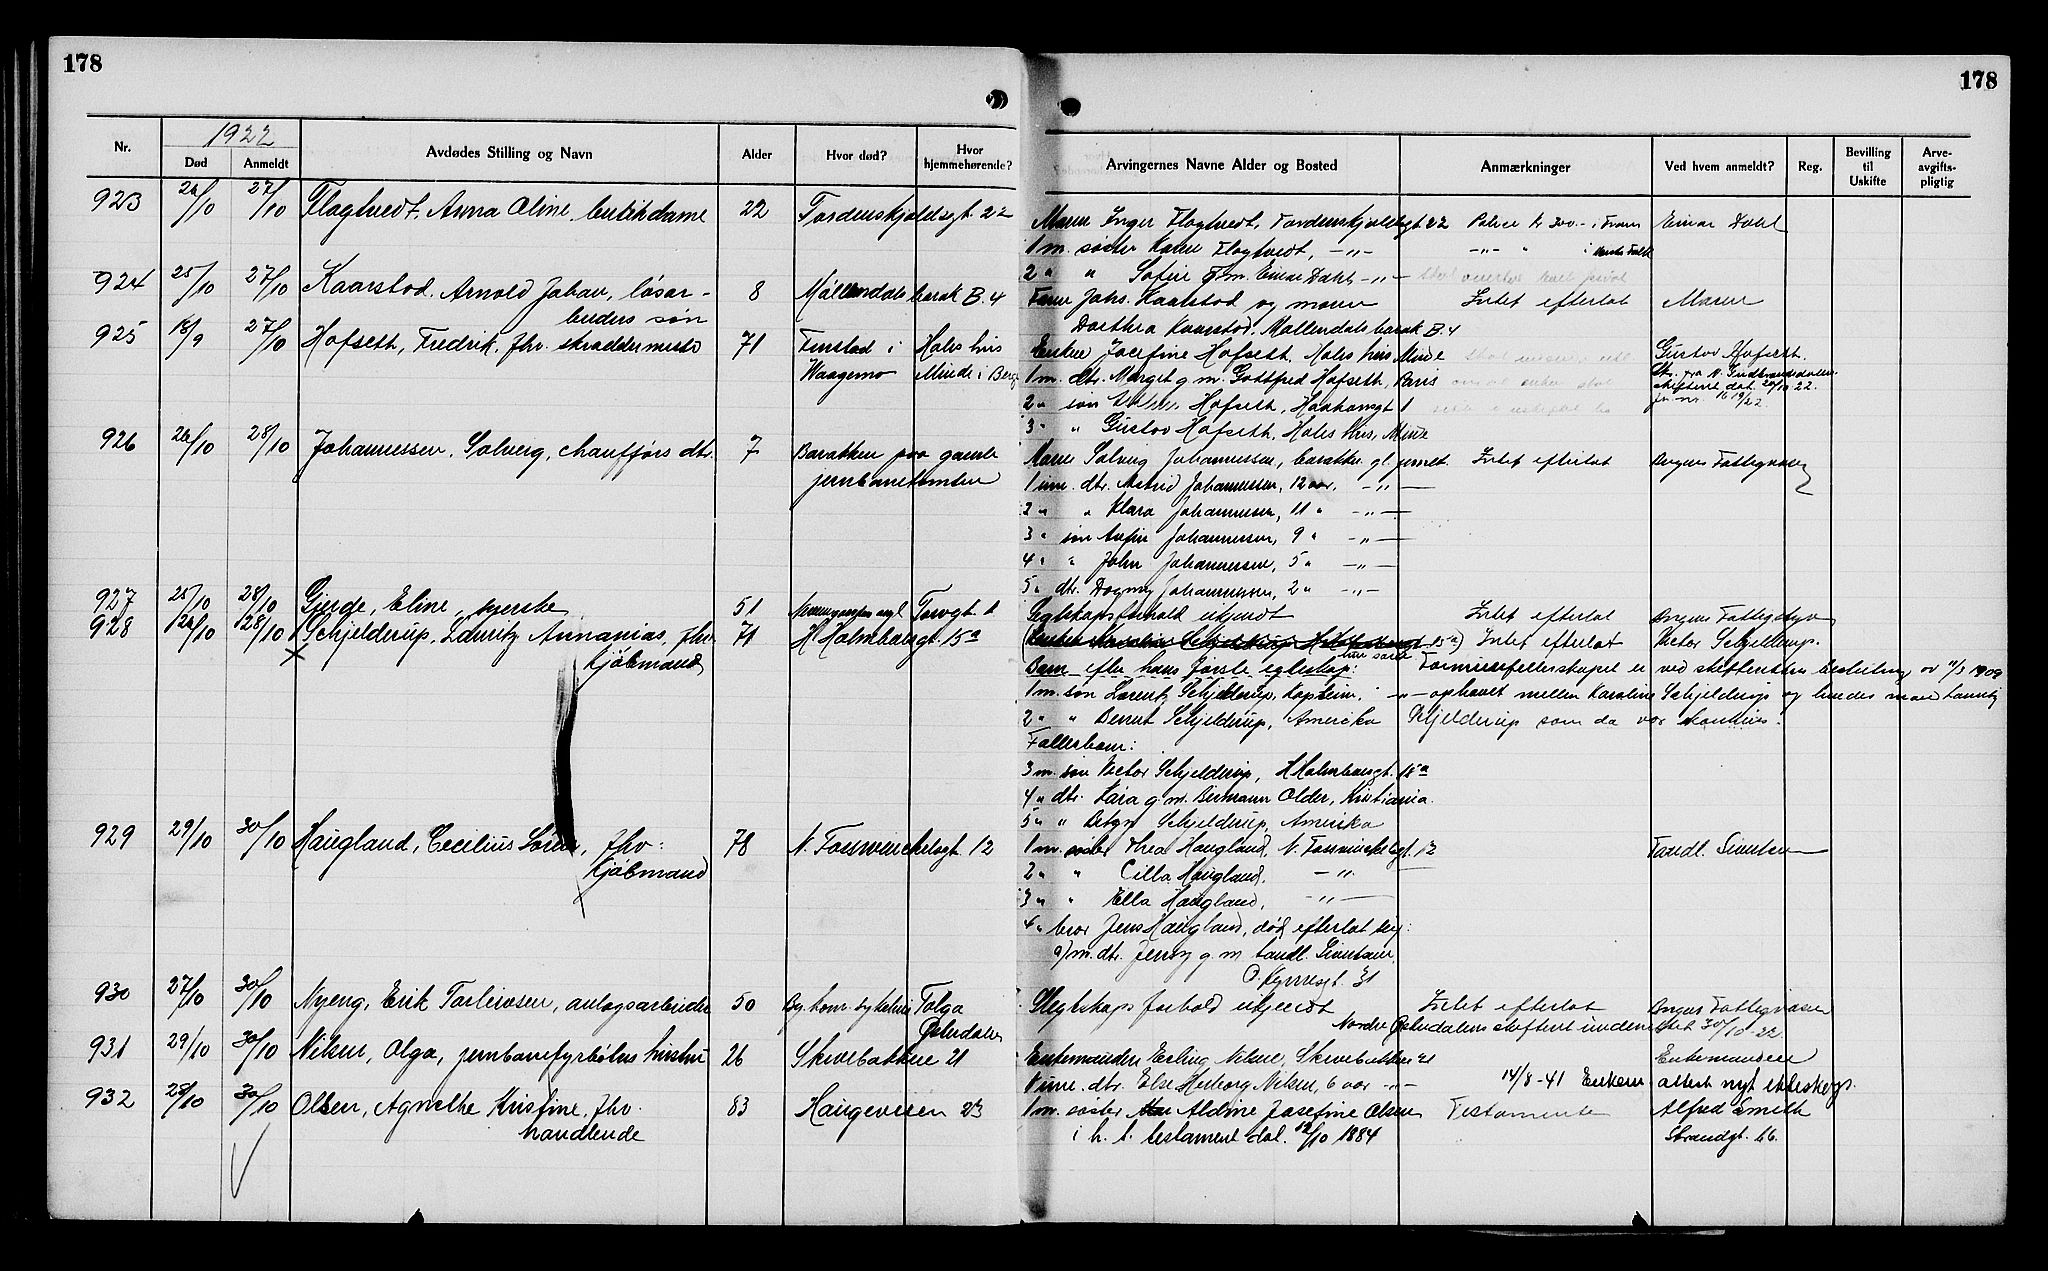 178
178
1922
Nr. Død Anmeldt Avdødes Stilling og Navn Alder Hvor død? Hvor hjemmehørende? Arvingernes Navne Alder og Bosted Anmærkninger Ved hvem anmeldt? Reg. Bevilling til Uskifte Arve-avgifts-pligtig
923 26/10 27/10 Flagtvedt, Anna Oline, butikdame 22 Tordenskjoldsgt. 22 Moren Inger Flagtvedt, Tordenskjoldsgt 22 Police kr 300.- i Fram Einar Dahl
1 m. søster Karen Flagtvedt, -"- -"- " i
2 " " Sofie g. m. Einar Dahl -"-
924 25/10 27/10 Kaarstad, Arnold Johan, løsar- 8 Møllendals barak B. 4 Faren Johs. Kaarstad og moren Intet efterlat Moren
beiders søn Dorthea Kaarstad, Møllendals barak B. 4
925 18/9 27/10 Hofseth, Fredrik, fhv. skræddermester 71 Finstad i Holes hus Enken Josefine Hofseth, Holes hus, Minde Gustav Hofseth.
Waagemo Minde i Berg 1 m. dtr. Margit g. m. Gottfred Hofseth, Paris Skr. fra N. Gudbrandsdalen
skifteret dat. 20/10 22.
2 " søn Hofseth, Haakonsgt 1 jr. nr. 1619/22.
3 " " Gustav Hofseth, Holes hus, Minde
926 26/10 28/10 Johannessen, Solveig, chaufførs dtr. 7 Barakken paa gamle Moren Solveig Johannessen, barakken gl. jernbt. Intet efterlat Bergens Fattigvæsen
jernbanetomten 1 um. dtr. Astrid Johannessen, 12 aar, -"-
2 " " Klara Johannessen, 11 " -"-
3 " søn Johannessen, 9 " -"-
4 " " John Johannessen, 5 " -"-
5 " dtr. Dagny Johannessen, 2 " -"-
927 25/10 28/10 Gjerde, Eline, syerske 51 Torvgt. 1 Egteskapsforhold ukjendt Intet efterlat Bergens Fattigvæsen
928 26/10 28/10 Schjelderup, Lauritz Annanias, fhv. 71 H. Holmboesgt. 15a Schjelderup 15a) Intet efterlat Victor Schjelderup.
kjøbmand Barn efter hans første egteskap: Formuesfellesskapet er ved skifterettens beslutning av 11/3 1909
1 m. søn Lorentz Schjelderup, kaptein, -"- ophævet mellem Karoline Schjelderup og hendes mand Lauritz
2 " " Bernt Schjelderup, Amerika Schjelderup som da var
Fællesbarn:
3 m. søn Victor Schjelderup, H. Holmboesgt. 15a
4 " dtr. Lara g. m. Bermann Older, Kristiania.
5 " " Schjelderup, Amerika
929 29/10 30/10 Haugland, Cecilius fhv. 78 N. Fosswinckelsgt. 12 1 m. søster Thea Haugland, N. Fosswinckelsgt. 12 Tandl. Sivertsen
kjøbmand 2 " " Cilla Haugland, -"-
3 " " Ella Haugland, -"-
4 " bror Jens Haugland, død, efterlat sig:
a) m. dtr. Jenny g. m. tandl. Sivertsen,
O. Kyrresgt. 31
930 27/10 30/10 Nyeng, Erik Torleivsen, anlægsarbeider 50 By. kom. sykehus Tolga Slegtskapsforhold ukjendt Intet efterlat Bergens Fattigvæsen
Østerdalen Nordre Østerdalens skifteret underrettet 30/10-22.
931 29/10 30/10 Nilsen, Olga, jernbanefyrbøters hustru 26 Skivebakken 21 Enkemanden Erling Nilsen, Skivebakken 21 Enkemanden
1 um. dtr. Else Herborg Nilsen, 6 aar -"- 14/8-41 Enkem. attest nytt ekteskap.
932 28/10 30/10 Olsen, Agnethe Kristine, fhv. 83 Haugeveien 23 1 m. søster Aldine Josefine Olsen Testamente Alfred Smith
handlende i h. t. testament dat. 12/10 1884 Strandgt. 66.